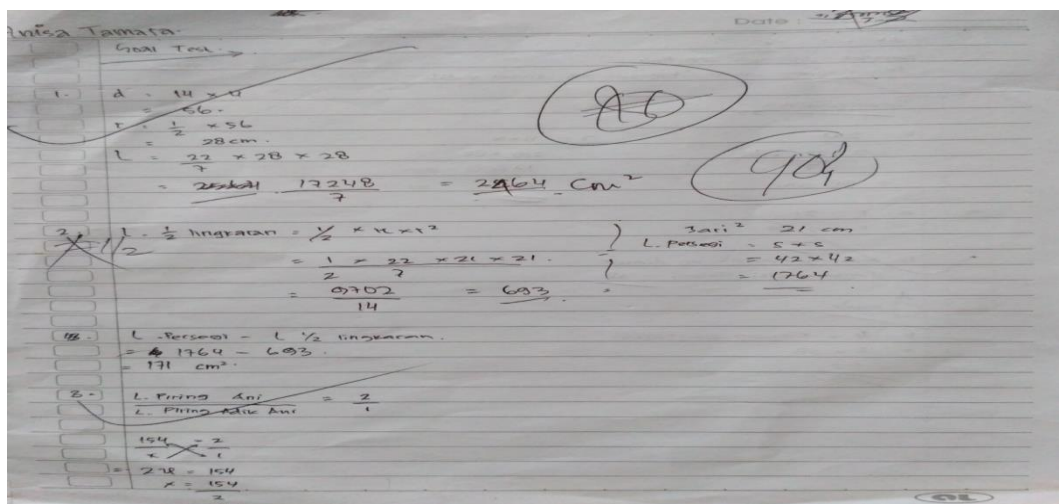 Anisa Tamara.
Date :
Goal Test
1. d = 14 × 4
= 56.
r = 1/2 × 56
= 28 cm.
L = 22/7 × 28 × 28
= 17248/7 = 2464 cm²
2. L. 1/2 lingkaran = 1/2 × π × r²
= 1/2 × 22/7 × 21 × 21.
= 9702/14 = 693.
Jari² 21 cm
L. Persegi = s × s
= 42 × 42
= 1764
L. Persegi - L 1/2 lingkaran.
= 1764 - 693.
= 171 cm².
3. L. Piring Ani / L. Piring Adik Ani = 2/1
154/x = 2/1
= 2x = 154
x = 154/2